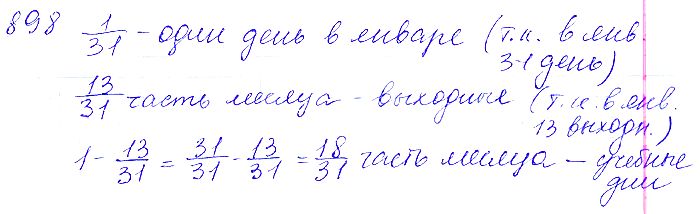 898 1/31 - один день в январе (т.к. в янв. 31 день)
13/31 часть месяца - выходные (т.к. в янв. 13 выходн.)
1 - 13/31 = 31/31 - 13/31 = 18/31 часть месяца — учебные дни